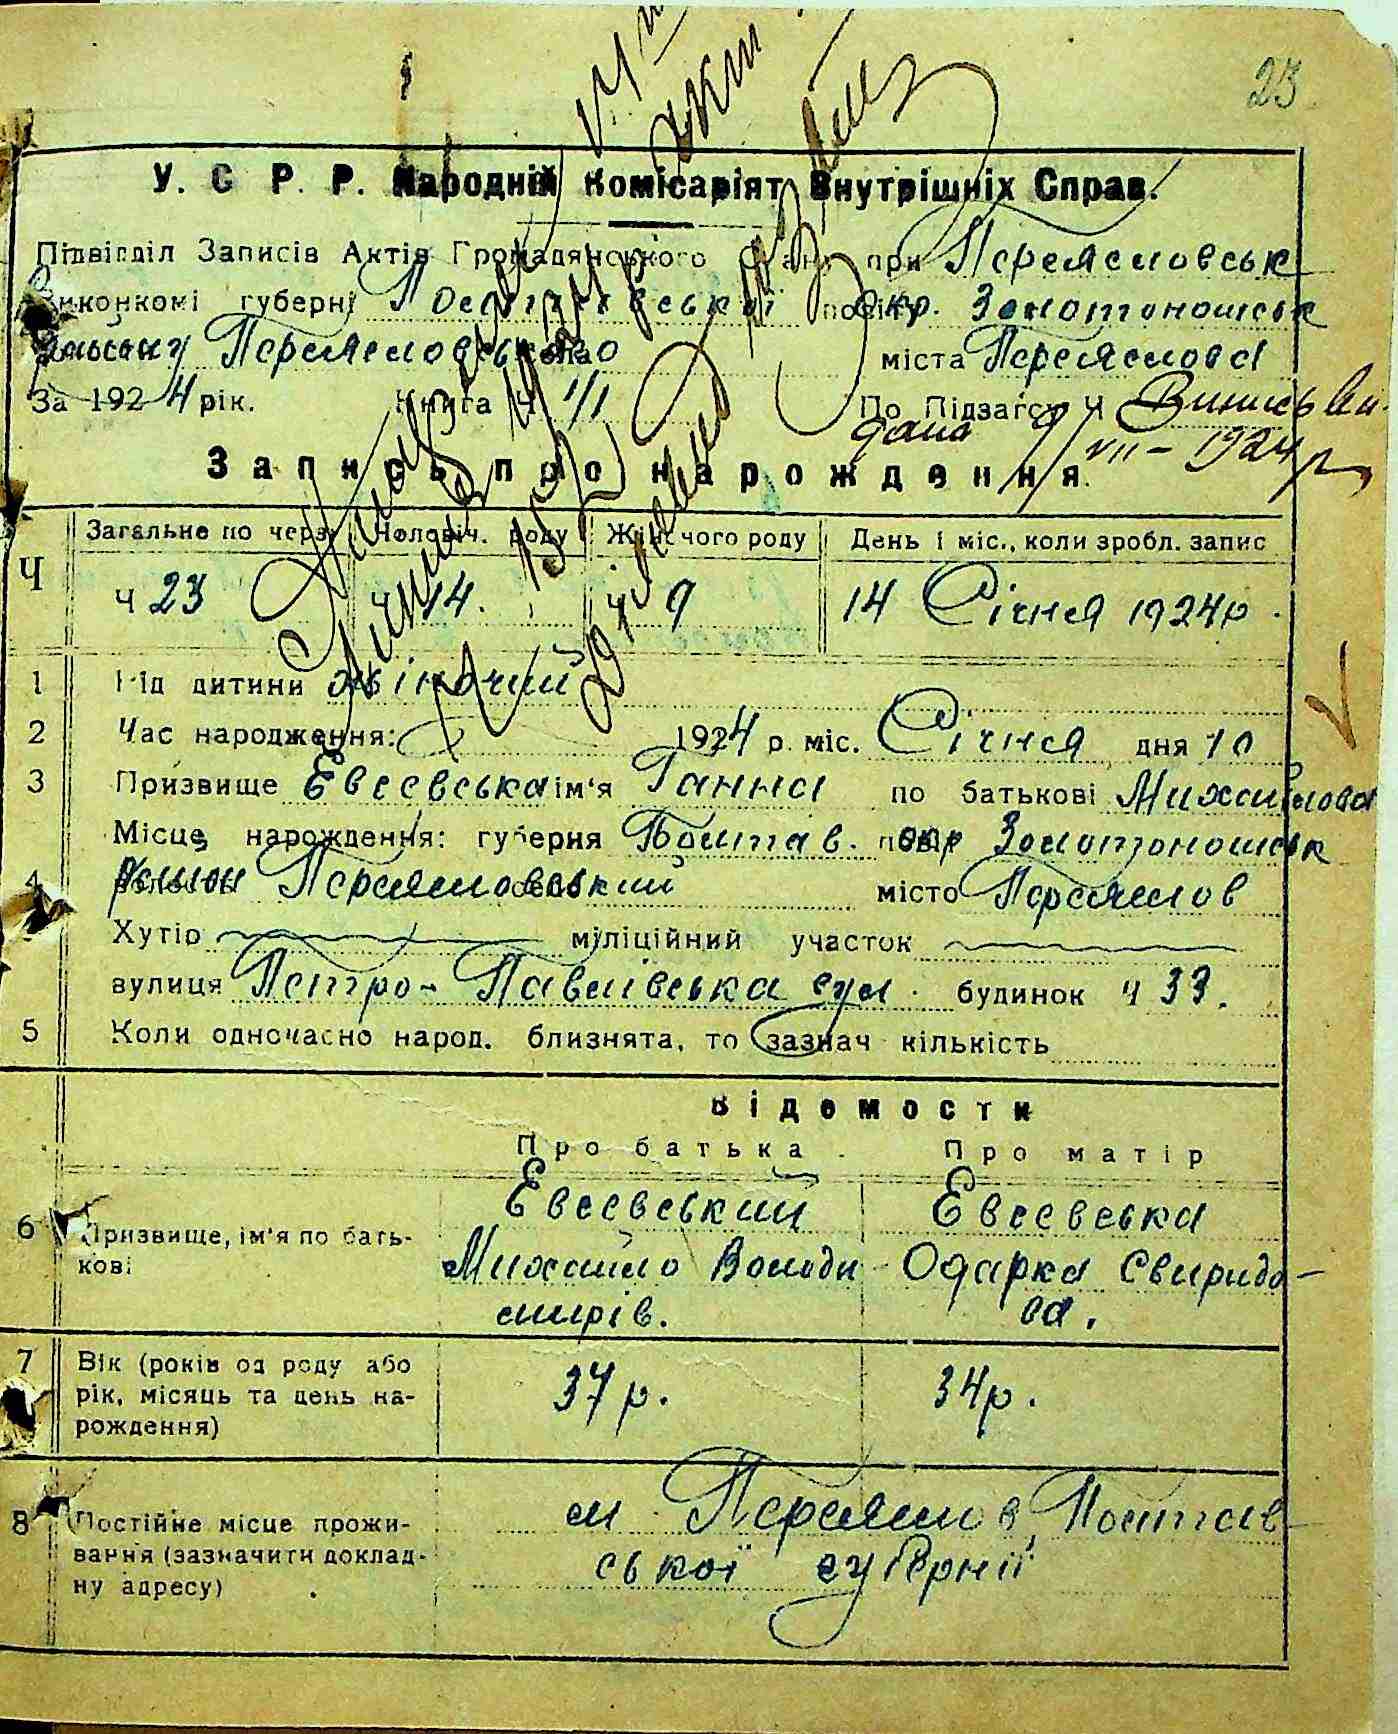 23
У. С Р. Р. Народній Комісаріят Внутрішніх Справ.
Підвідділ Записів Актів Громадянського Стану при Переяславськ
Виконкомі губерні Полтавської повіту окр. Золотоношськ
Району Переяславського села міста Переяслова
За 1924 рік. Книга Ч 1/1 По Підзагсу Ч Випись ви-
дана 9/VII - 1924 р
Запись про нарождення.
Ч Загальне по черзі Чоловіч. роду Жіночого роду День і міс., коли зробл. запис
ч 23 14. 9 14 Січня 1924р.
1 Під дитини жіночий
2 Час народження: 1924 р. міс. Січня дня 10
3 Призвище Евсевська ім'я Ганна по батькові Михайлова
Місце нарождення: губерня Полтав. повіт окр Золотоношськ
4 волость район Переясловський село місто Переяслов
Хутір міліційний участок
вулиця Петро-Павлівська вул. будинок ч 33.
5 Коли одночасно народ. близнята, то зазнач кількість
Відомости
Про батька Про матір
6 Призвище, ім'я по бать-
кові
Евсевський Евсевська
Михайло Володи- Одарка Свиридо-
мирів. ва.
7 Вік (років од роду або
рік, місяць та день на-
рождення)
37 р. 34 р.
8 Постійне місце прожи-
вання (зазначити доклад-
ну адресу)
м Переяслов, Полтав-
ської губернії